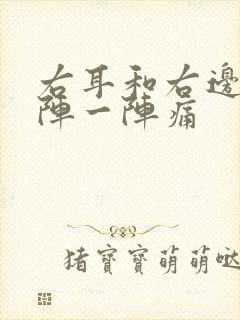 右耳和右邊
陣一陣痛
猪寶寶萌萌噠